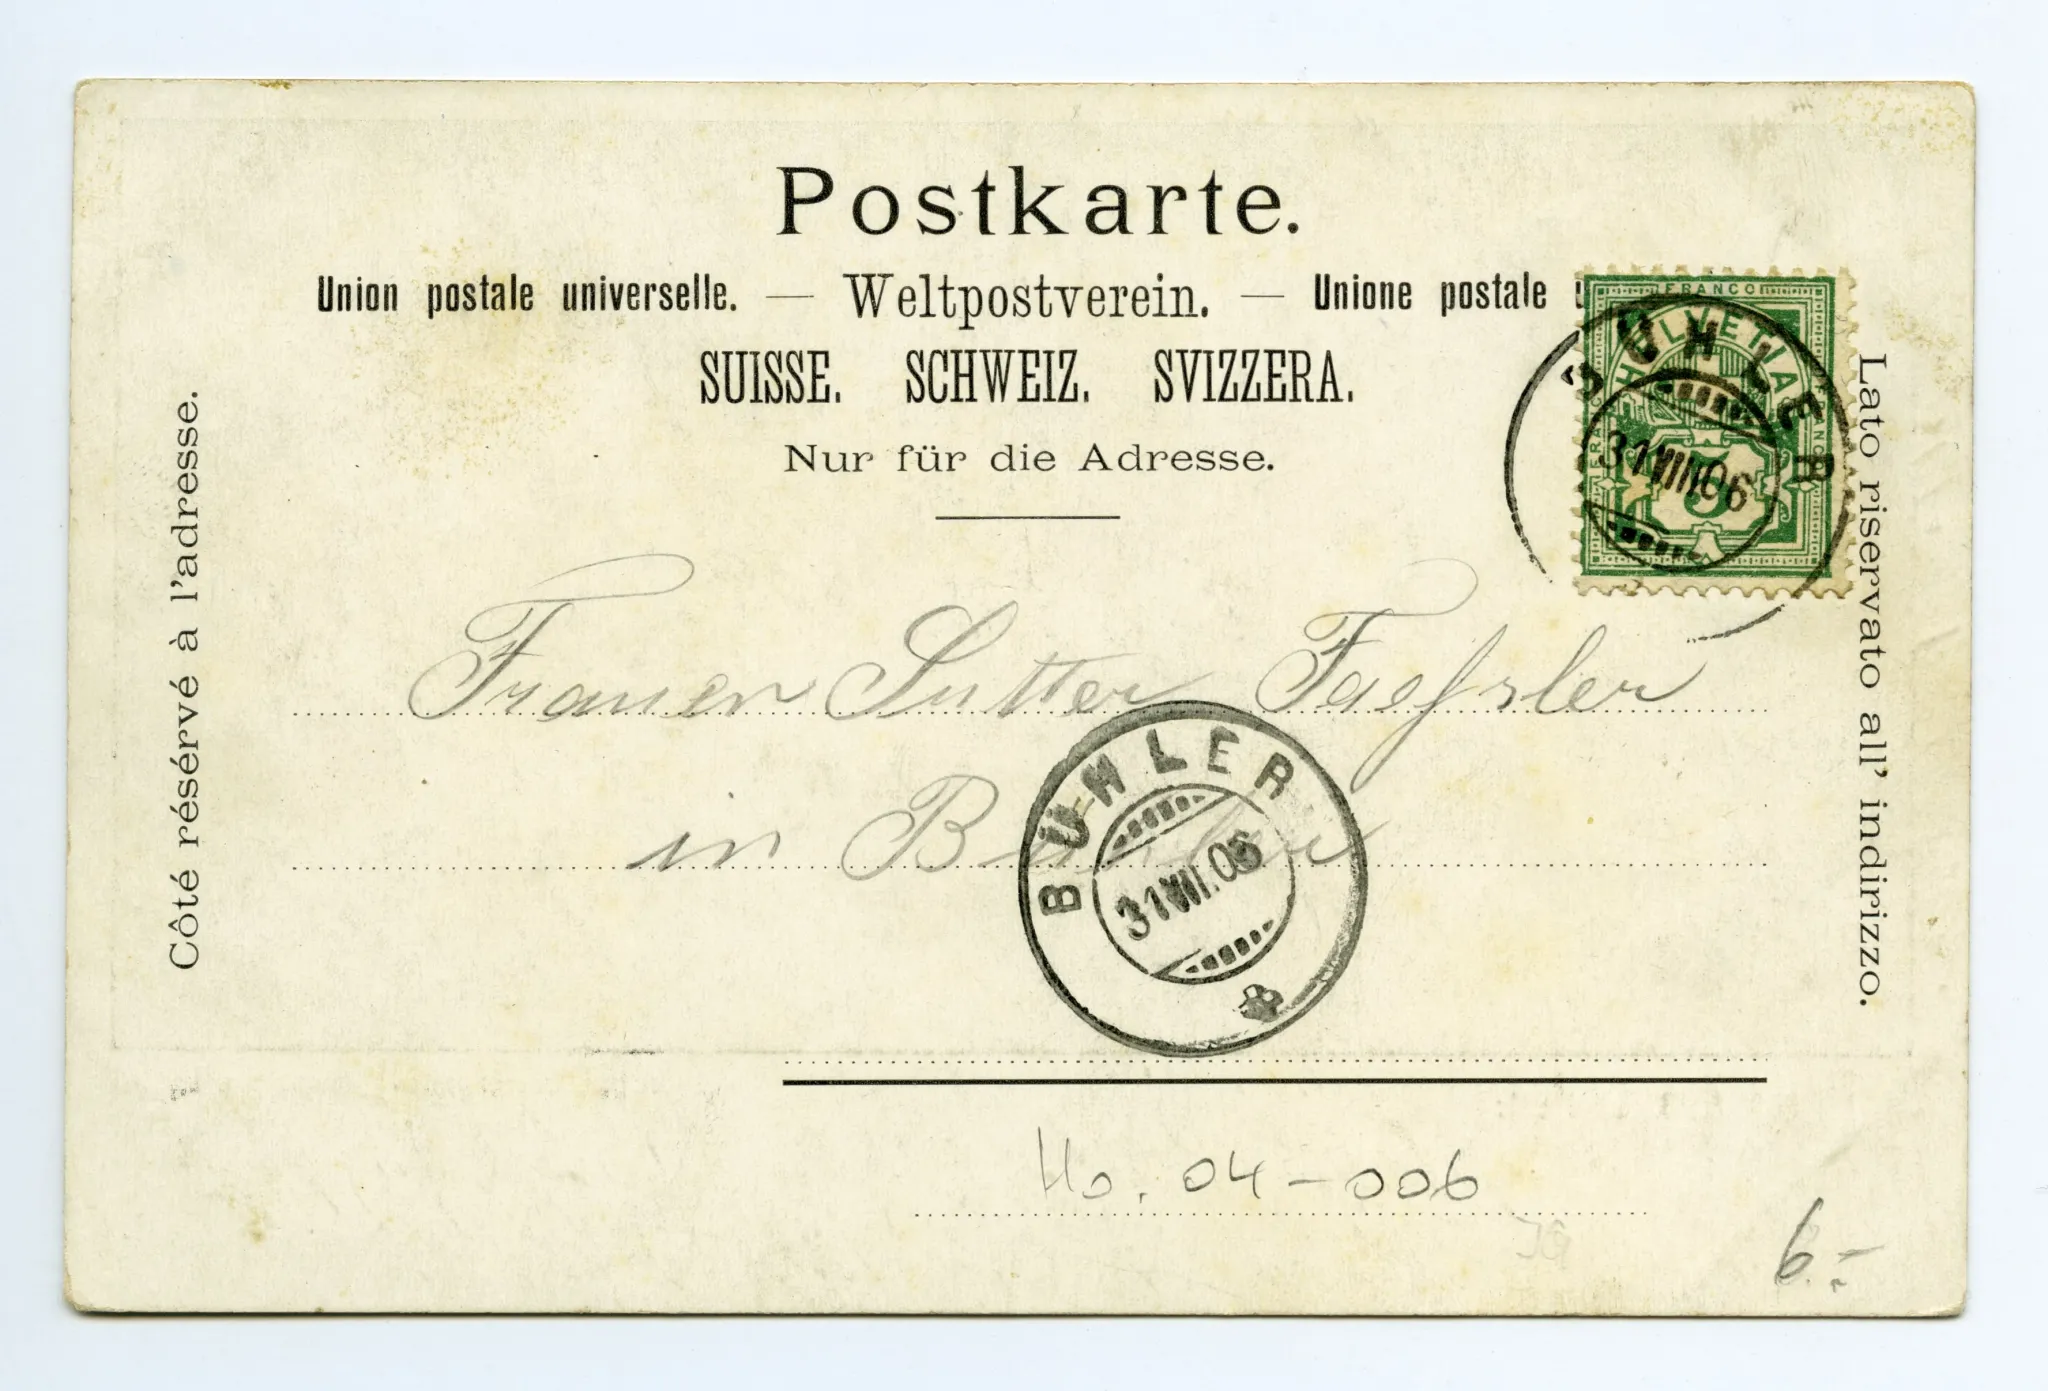 Postkarte.
Union postale universelle. — Weltpostverein. — Unione postale
SUISSE. SCHWEIZ. SVIZZERA.
Nur für die Adresse.
Côté réservé à l'adresse.
Lato riservato all' indirizzo.
FRANCO
HELVETIA
FRANCO
5
BÜHLER
31 VIII 06
Sutter Faessler
in Bühler
BÜHLER
31 VIII. 06
04-006
6.-